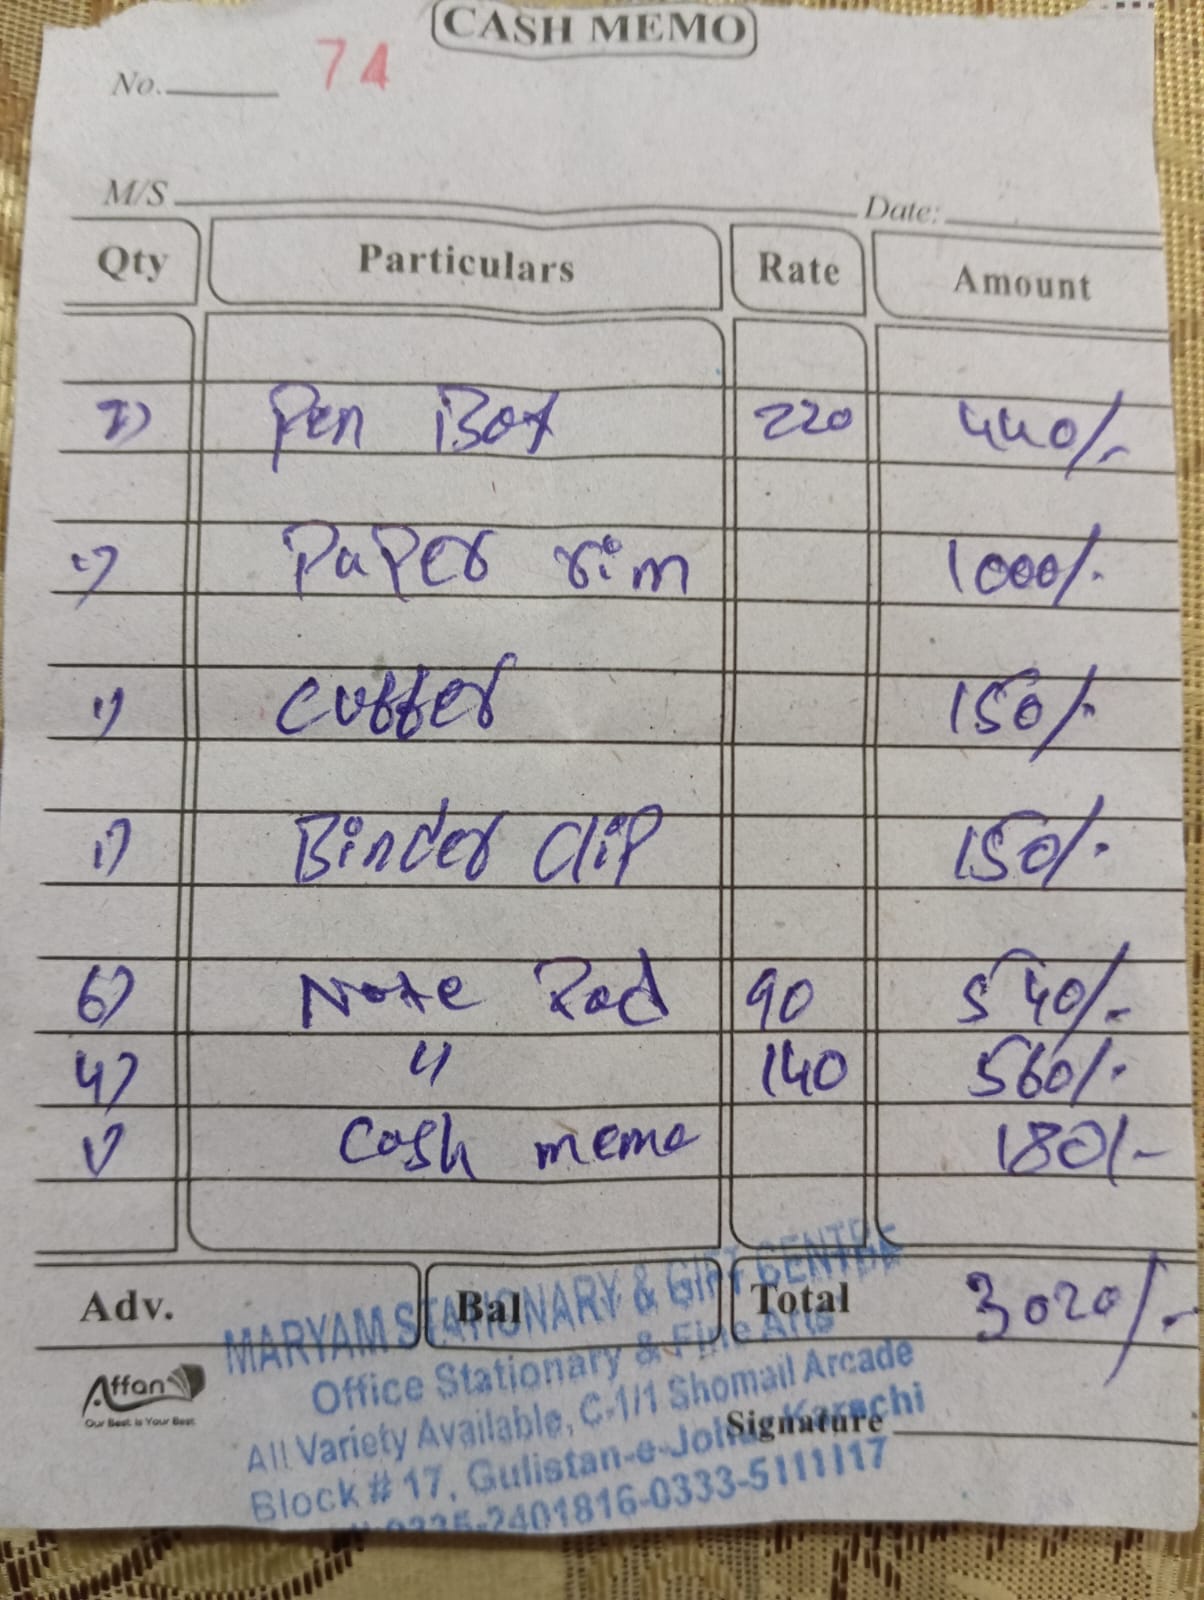 CASH MEMO
No. 74
M/S Date:
Qty Particulars Rate Amount
2) Pen Box 220 440/-
1) Paper rim 1000/-
1) Cutter 150/-
1) Binder Clip 150/-
6) Note Pad 90 540/-
4) " 140 560/-
1) Cash memo 180/-
Adv. Bal Total 3020/-
MARYAM STATIONARY & GIFT CENTRE
Office Stationary & Fine Arts
All Variety Available, C-1/1 Shomail Arcade
Block # 17, Gulistan-e-Johar Karachi
0335-2401816-0333-5111117
Affan
Our Best is Your Best
Signature